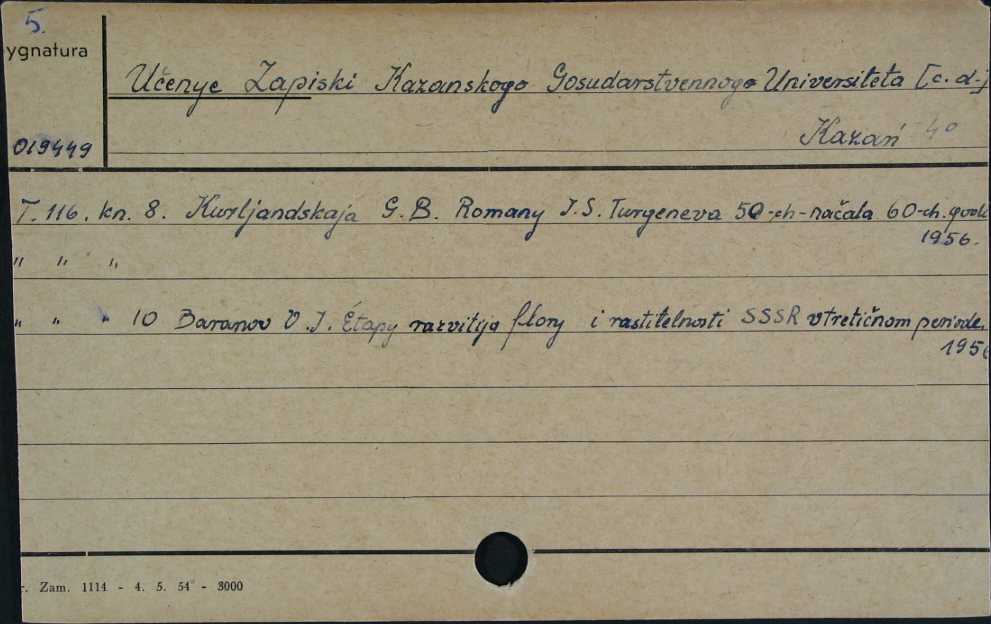 5.
ygnatura
Učenye Zapiski Kazanskogo Gosudarstvennogo Universiteta [c. d.]
Kazań 4°
019449
T. 116. kn. 8. Kurljandskaja G. B. Romany I. S. Turgeneva 50-ch - načala 60-ch. godo
1956.
" " "
" " " 10 Baranov V. I. Étapy razvitija flory i rastitelnosti SSSR v tretičnom periode.
1956
r. Zam. 1114 - 4. 5. 54 - 3000